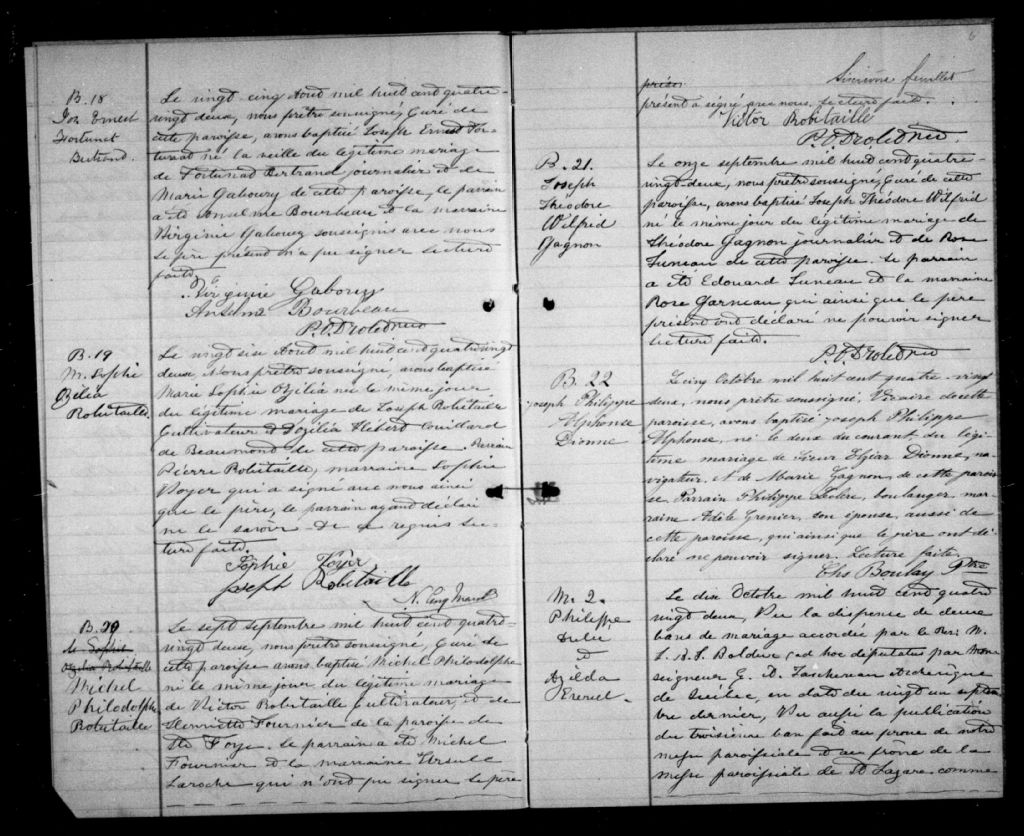 B. 18
Jos Ernest
Fortunat
Bertrand.
Le vingt cinq Aout mil huit cent quatre-
vingt deux, nous prêtre soussigné, Curé de
cette paroisse, avons baptisé Joseph Ernest For-
tunat né la veille du légitime mariage
de Fortunat Bertrand journalier et de
Marie Gaboury de cette paroisse, le parrain
a été Anselme Bourbeau et la marraine
Virginie Gaboury soussignés avec nous
le père présent n'a pu signer lecture
faite.
Virginie Gaboury
Anselme Bourbeau
P. O. Drolet Ptre
B. 19
M. Sophie
Ozélia
Robitaille.
Le vingt six Aout mil huit cent quatre vingt
deux, Nous prêtre soussigné, avons baptisé
Marie Sophie Ozélia née le même jour
du légitime mariage de Joseph Robitaille
Cultivateur et d'Ozélia Hebert Couillard
de Beaumont de cette paroisse. Parrain
Pierre Robitaille, marraine Sophie
Voyer qui a signé avec nous ainsi
que le père, le parrain ayant déclaré
ne le savoir de ce requis lec-
ture faite.
Sophie Voyer
Joseph Robitaille
B. 20
M. Sophie
Ozélia Robitaille
Michel
Philodolphe
Robitaille
Le sept septembre mil huit cent quatre
vingt deux, nous prêtre soussigné, Curé de
cette paroisse avons baptisé Michel Philodolphe
né le même jour du légitime mariage
de Victor Robitaille Cultivateur, et de
Henriette Fournier de la paroisse de
Ste Foye. Le parrain a été Michel
Fournier et la marraine Ursule
Laroche qui n'ont pu signer le père
6
Sixième feuillet
présent a signé avec nous, lecture faite.
Victor Robitaille
P. O. Drolet Ptre
B. 21.
Joseph
Théodore
Wilfrid
Gagnon
Le onze septembre mil huit cent quatre-
vingt-deux, nous prêtre soussigné, Curé de cette
paroisse, avons baptisé Joseph Théodore Wilfrid
né le même jour du légitime mariage de
Théodore Gagnon journalier et de Rose
Juneau de cette paroisse. Le parrain
a été Edouard Juneau et la marraine
Rose Garneau qui ainsi que le père
présent ont déclaré ne pouvoir signer
lecture faite.
P. O. Drolet Ptre
B. 22
Joseph Philippe
Alphonse
Dionne
Le cinq Octobre mil huit cent quatre-vingt
deux, nous prêtre soussigné, Vicaire de cette
paroisse, avons baptisé Joseph Philippe
Alphonse, né le deux du courant du légi-
time mariage de Sieur Elzéar Dionne, na-
vigateur, et de Marie Gagnon, de cette parois-
se. Parrain Philippe Leclerc, boulanger, mar-
raine Adèle Grenier, son épouse, aussi de
cette paroisse, qui ainsi que le père ont dé-
claré ne pouvoir signer. Lecture faite.
Chs Boulay Ptre
M. 2.
Philippe
et
Azilda
Le dix Octobre mil huit cent quatre
vingt deux, Vu la dispense de deux
bans de mariage accordée par le Rev. M.
ad hoc deputatus par Mon
seigneur E. A. Taschereau Archevêque
de Québec, en date du vingt un septem
bre dernier, Vu aussi la publication
du troisième ban faite au prône de notre
messe paroissiale et au prône de la
messe paroissiale de St Lazare comme